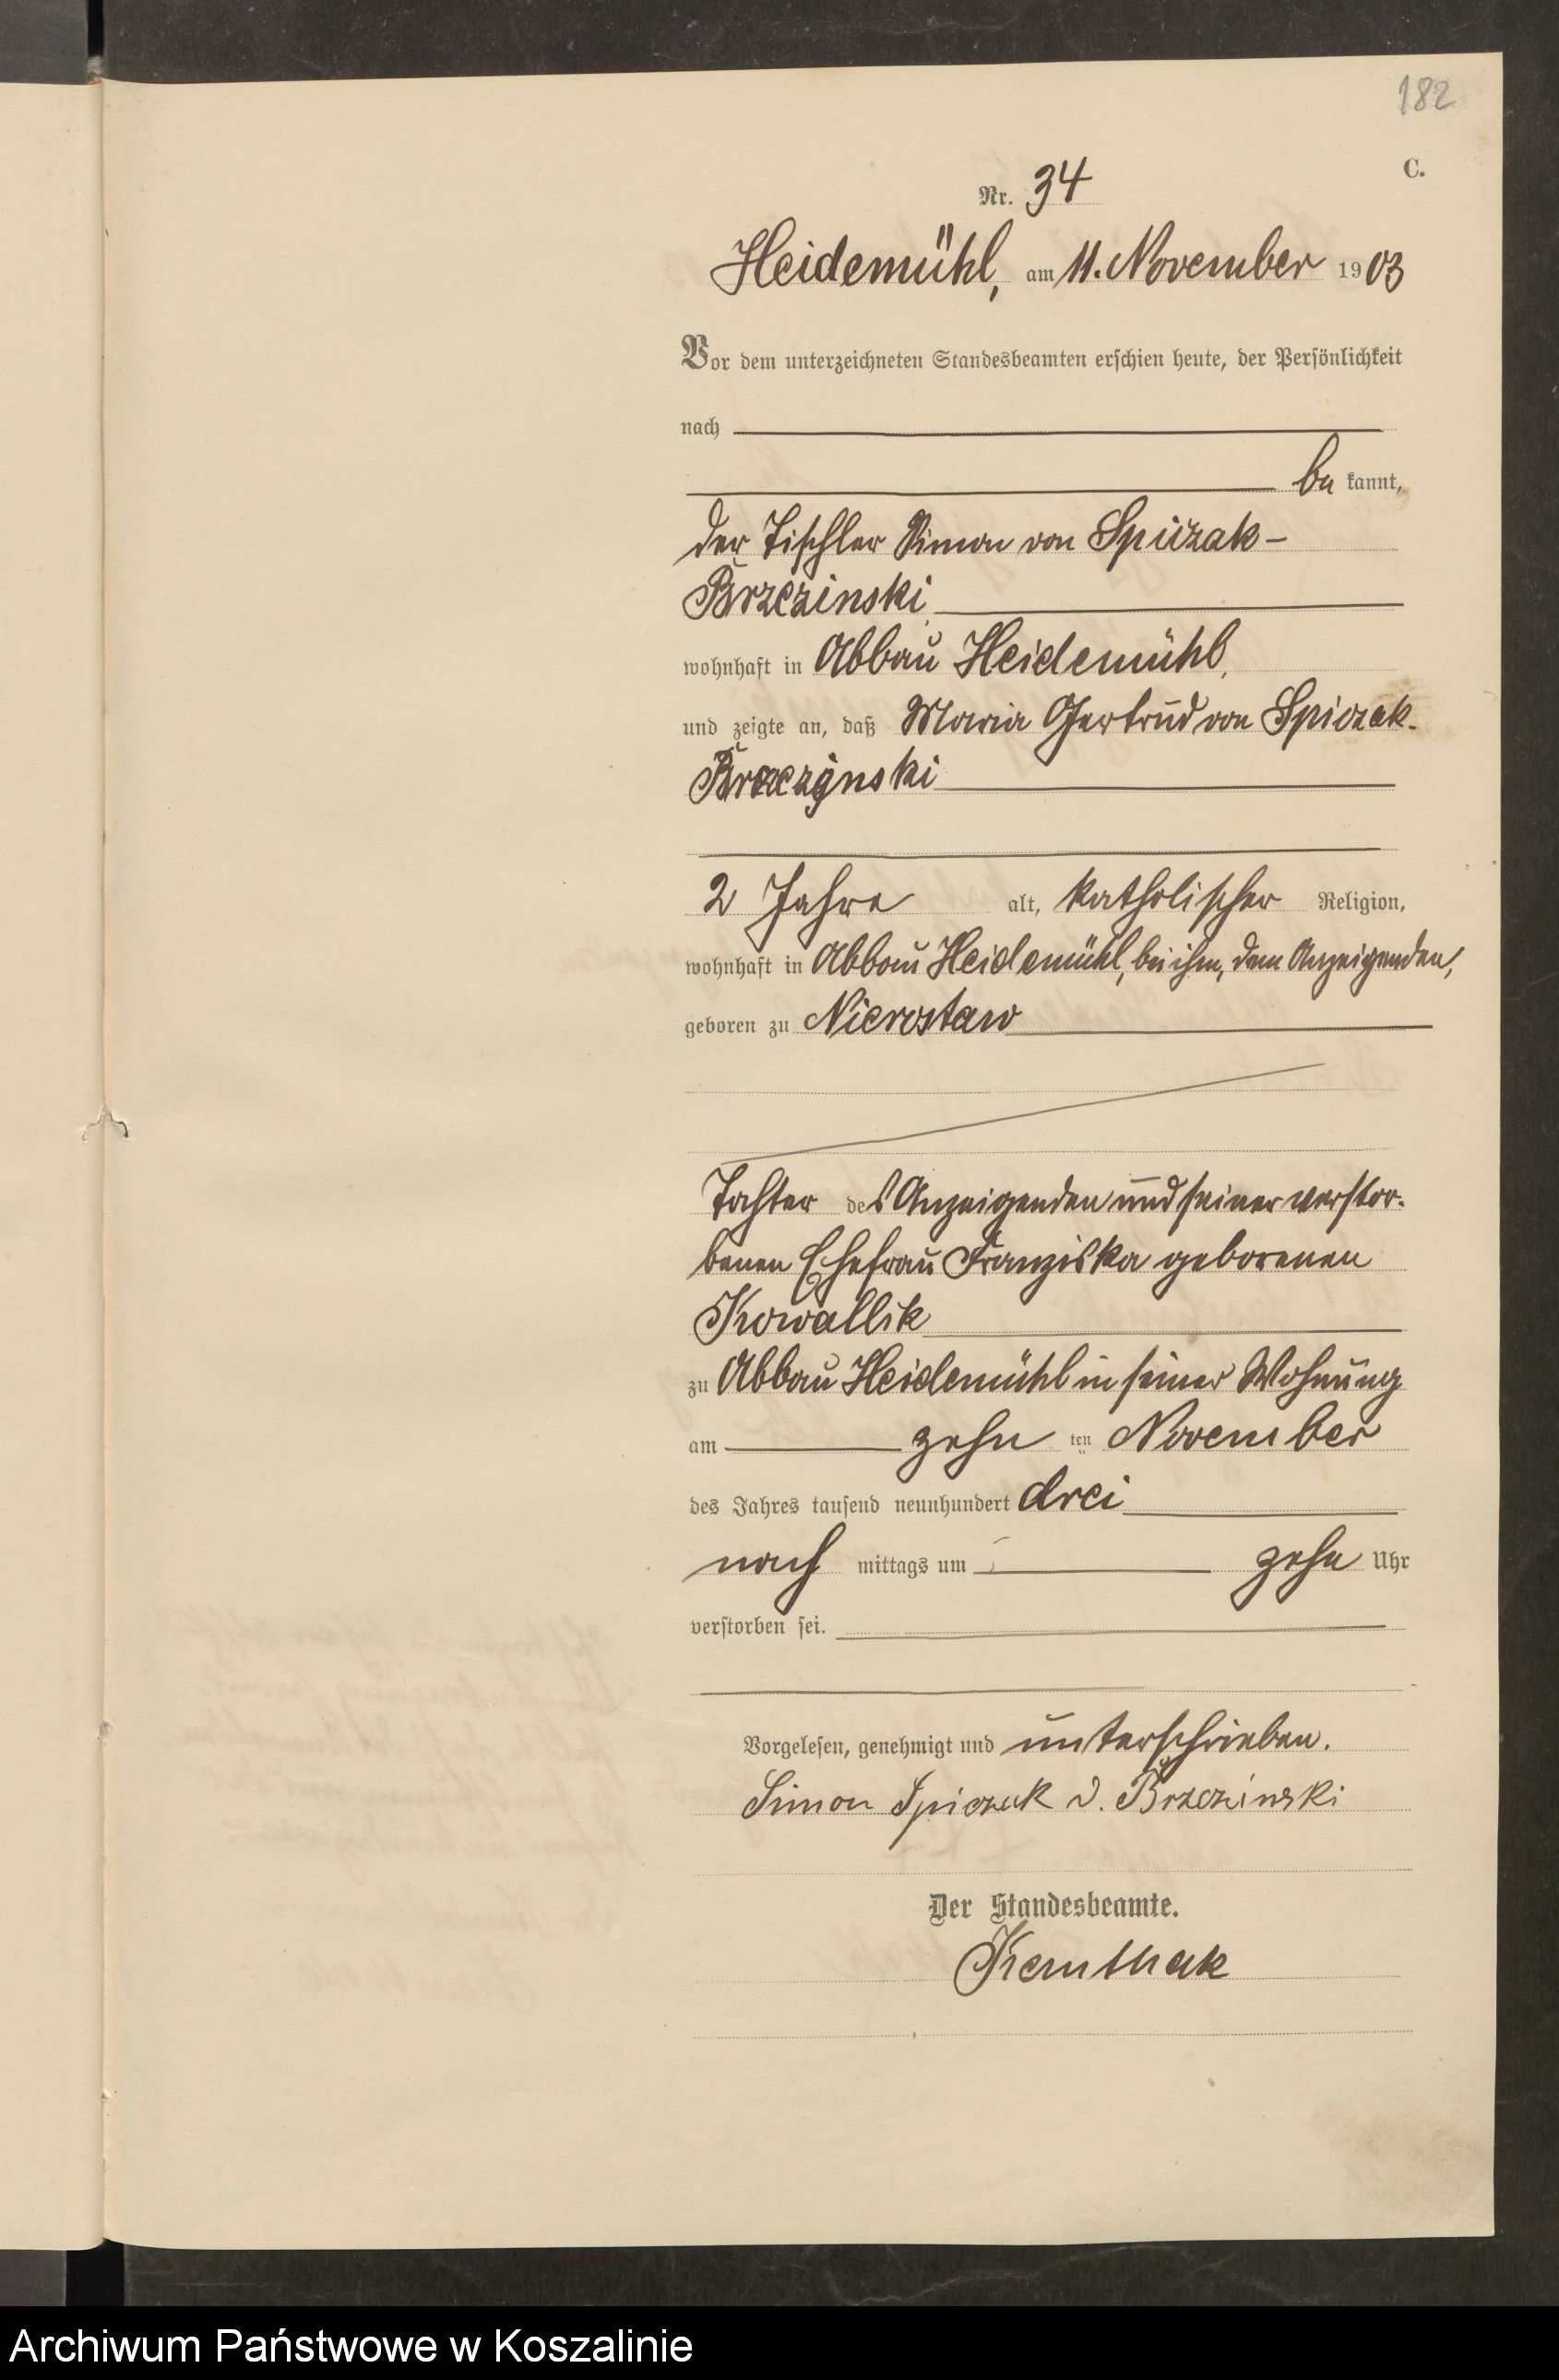 182
C.
Nr. 34
Heidemühl, am 11. November 1903
Vor dem unterzeichneten Standesbeamten erschien heute, der Persönlichkeit
nach
be kannt,
der Tischler Simon von Spiczak-
Brzezinski
wohnhaft in Abbau Heidemühl,
und zeigte an, daß Maria Gertrud von Spiczak-
Brzezinski
2 Jahre alt, katholischer Religion,
wohnhaft in Abbau Heidemühl, bei ihm, dem Anzeigenden,
geboren zu Nierostaw
Tochter des Anzeigenden und seiner verstor-
benen Ehefrau Franziska geborenen
Kowallik
zu Abbau Heidemühl in seiner Wohnung
am zehn ten November
des Jahres tausend neunhundert drei
nach mittags um zehn Uhr
verstorben sei.
Vorgelesen, genehmigt und unterschrieben.
Simon Spiczak v. Brzezinski
Der Standesbeamte.
Archiwum Państwowe w Koszalinie